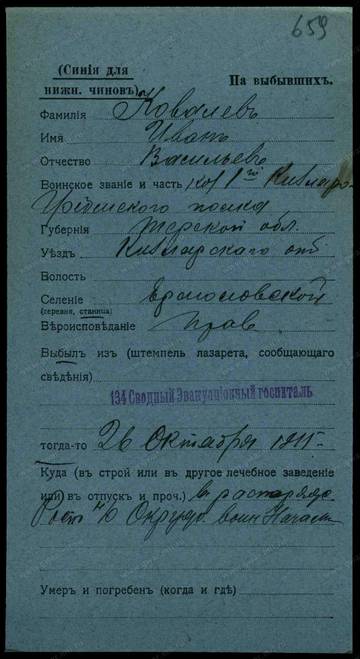 659
(Синія для
нижн. чиновъ)
На выбывшихъ.
Фамилія Ковалевъ
Имя Иванъ
Отчество Васильевъ
Воинское званіе и часть каз 1го Кизляро-
Гребенского полка
Губернія Терской обл.
Уѣздъ Кизлярскаго отд
Волость
Селеніе Ермоловской
(деревня, станица)
Вѣроисповѣданіе Прав
Выбылъ изъ (штемпель лазарета, сообщающаго
свѣдѣнія)
134 Сводный Эвакуаціонный госпиталь
тогда-то 26 Октября
Куда (въ строй или въ другое лечебное заведеніе
или въ отпускъ и проч.) в распоряж.
Рост н/Д Окружн. воин Началь
Умеръ и погребенъ (когда и гдѣ)